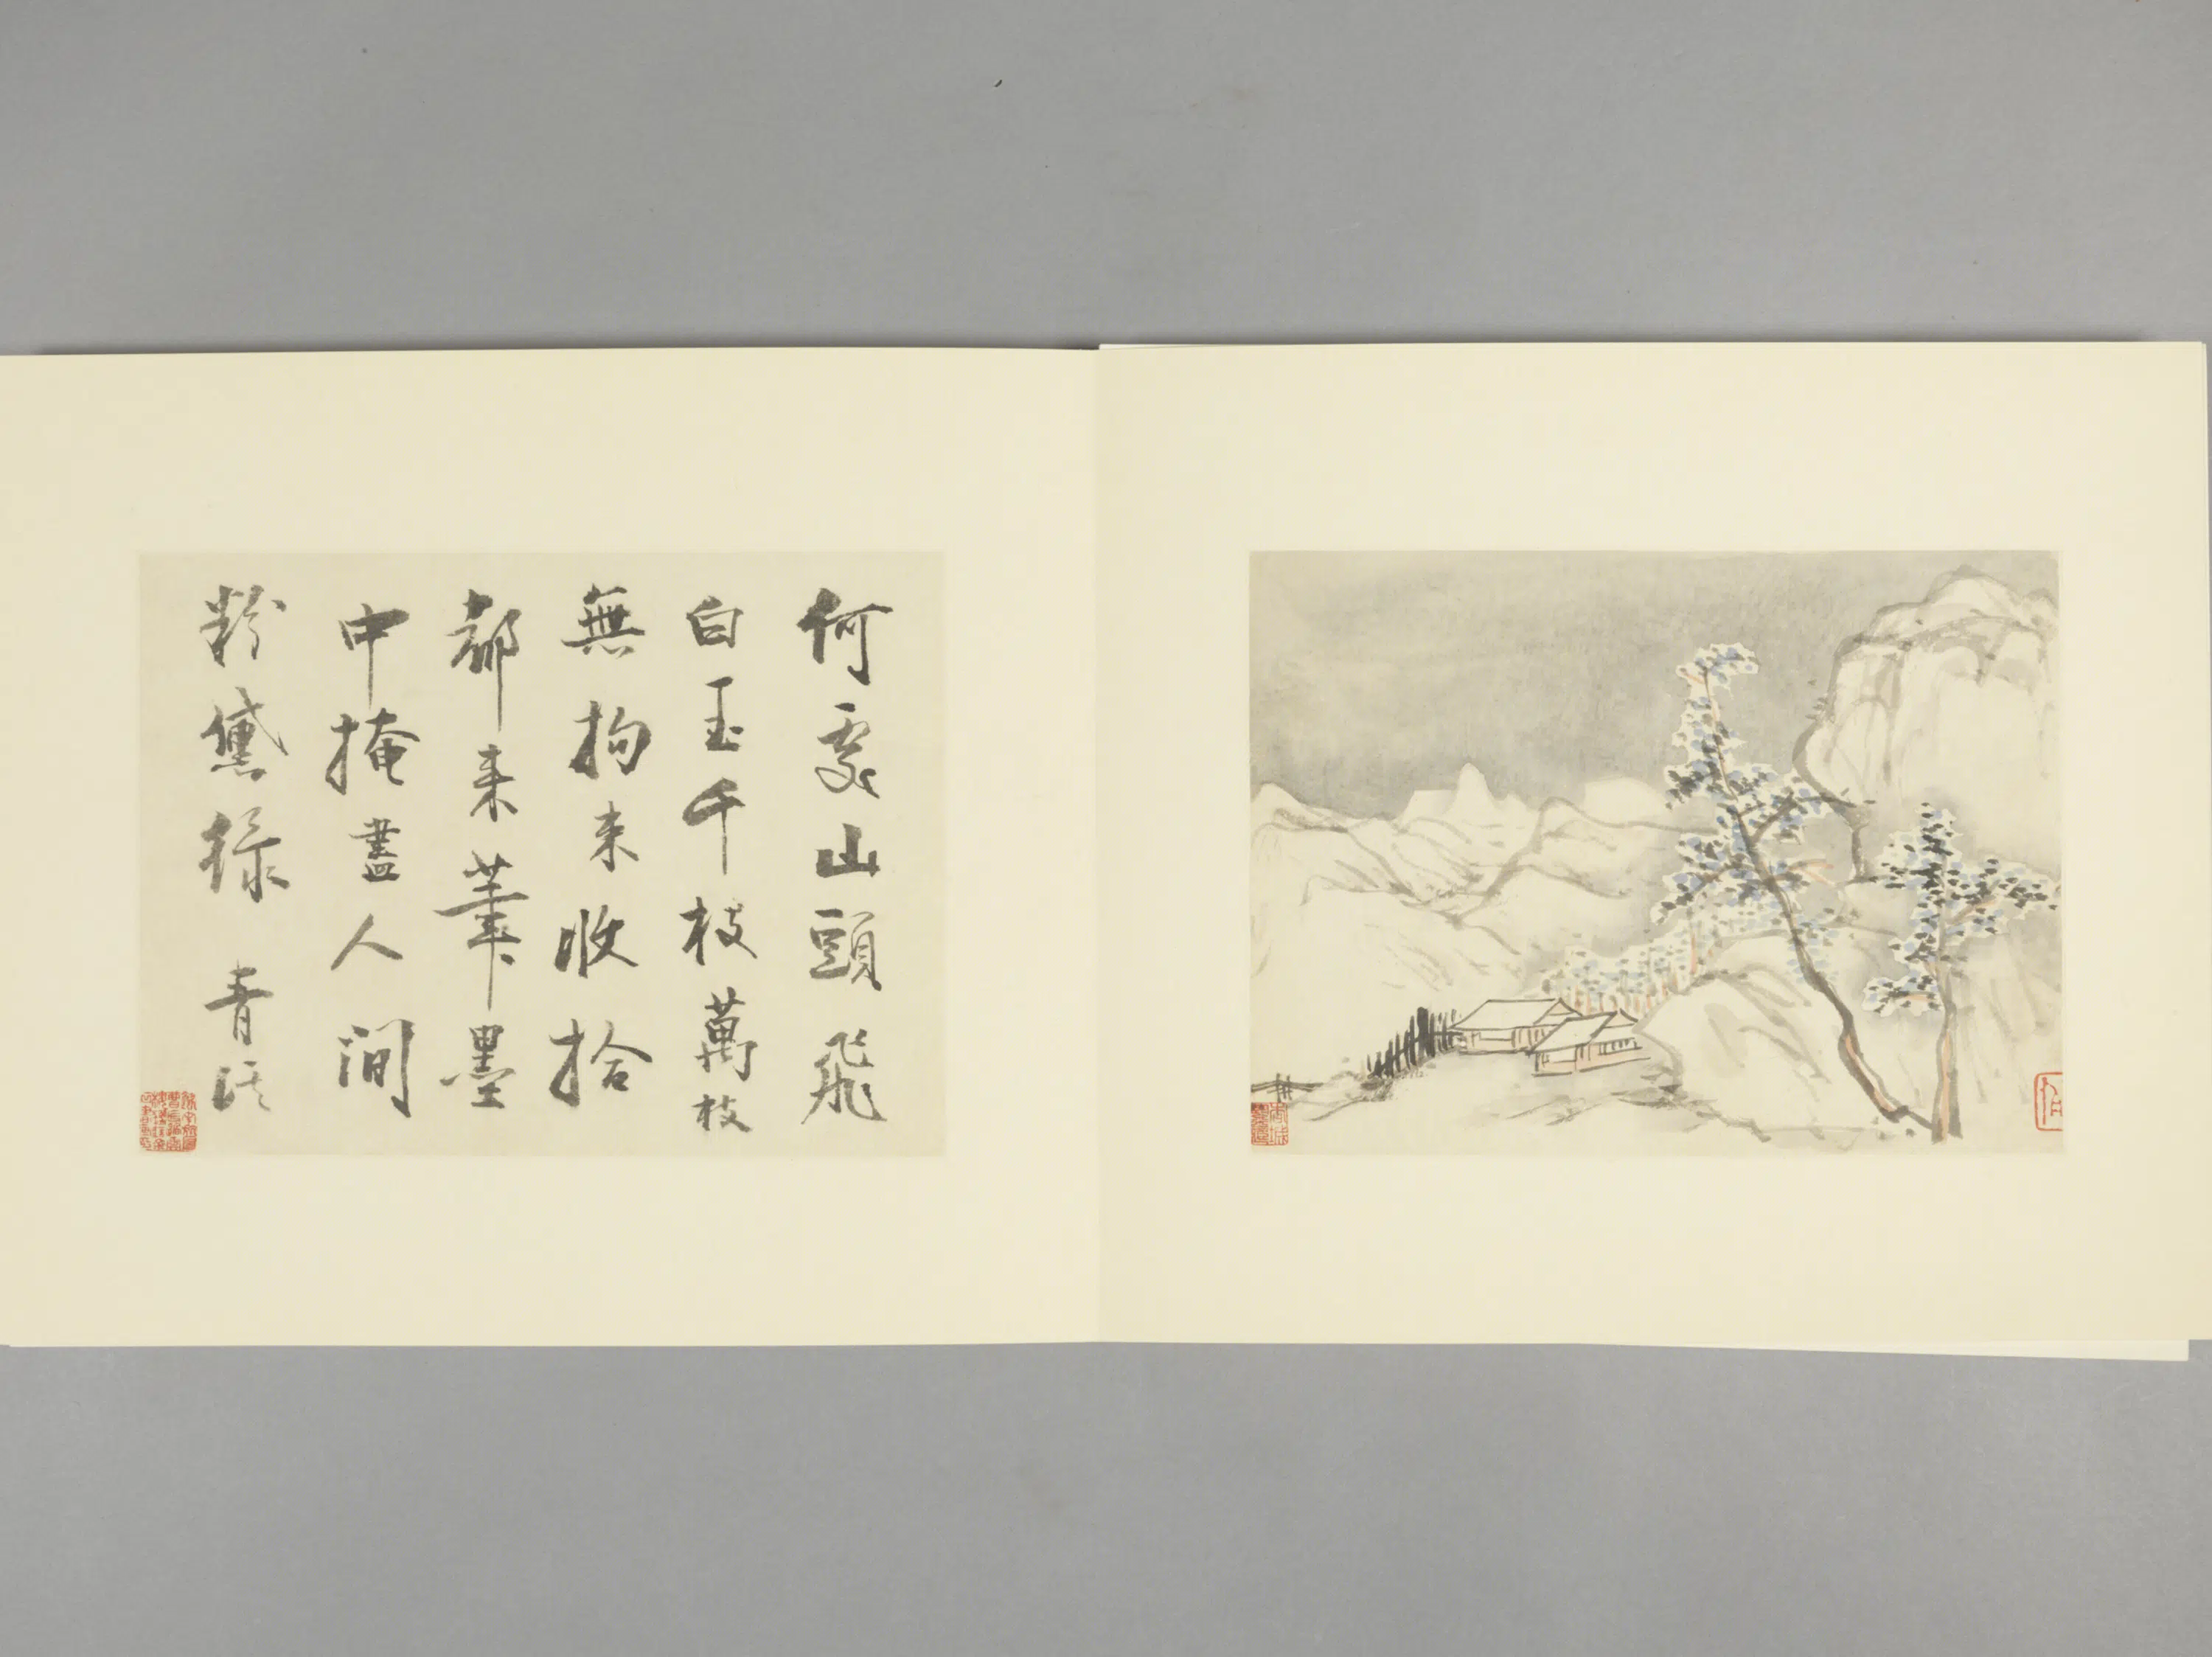 何處山頭飛
白玉千枝萬枝
無拘束收拾
都来筆墨
中掩盡人間
粉黛綠 青溪